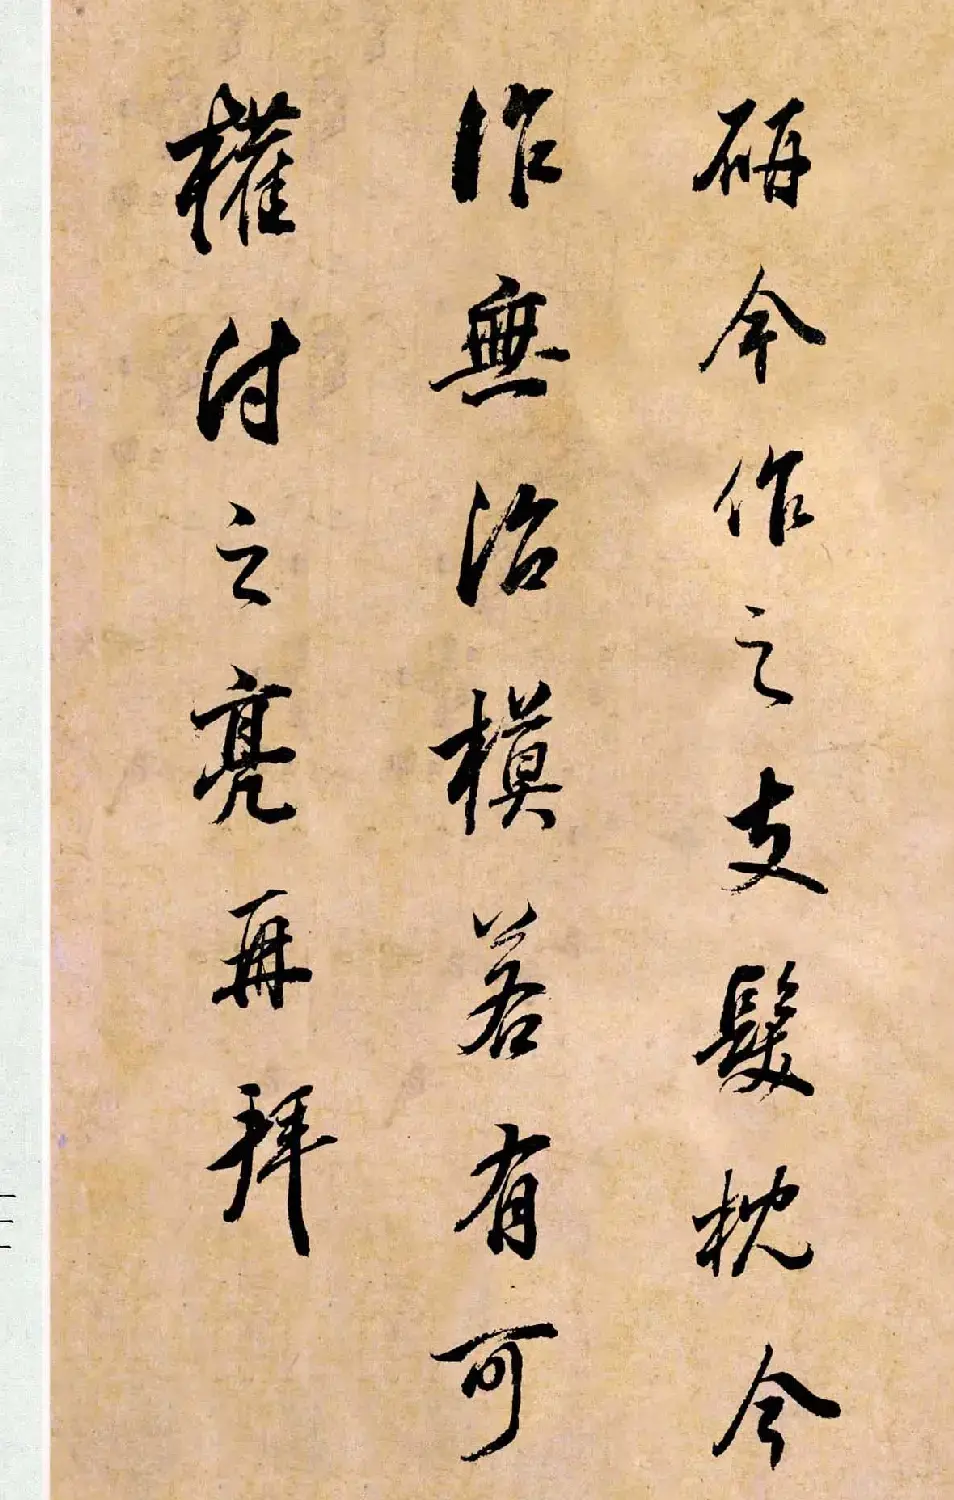 研作之支髮枕今
作無治模若有可
權付之亮再拜